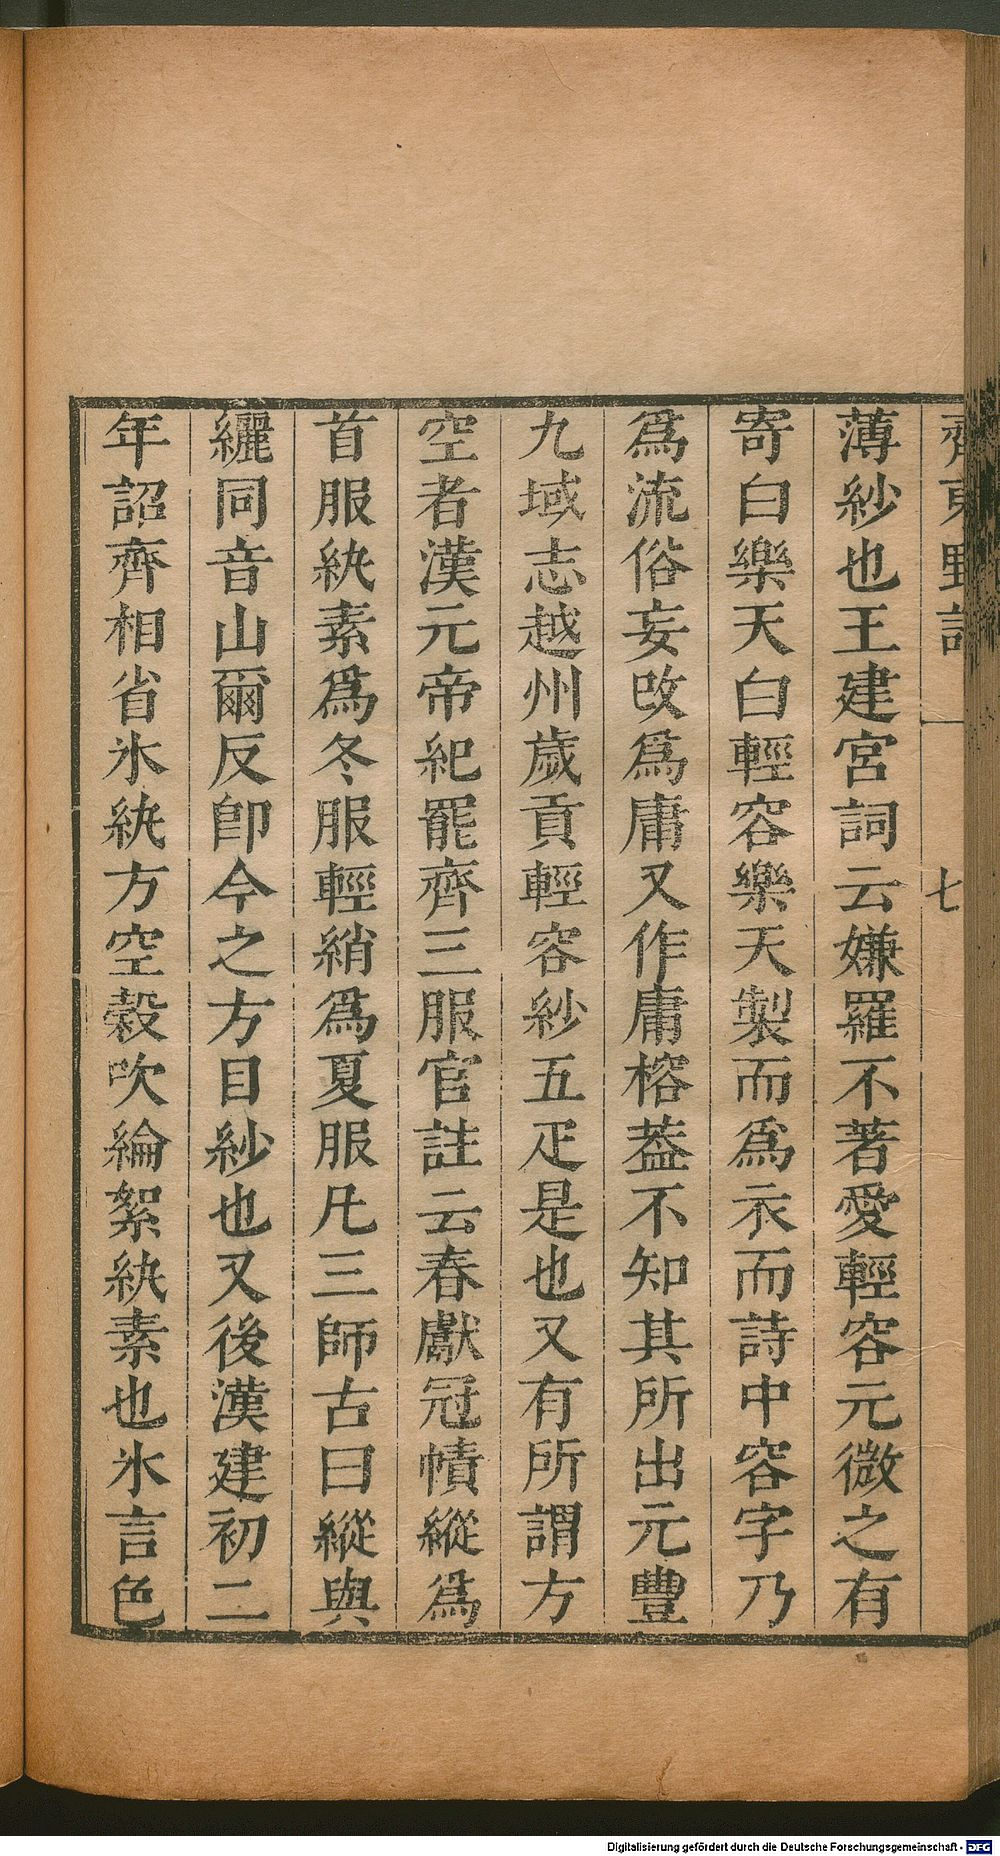 齊東野語 一 七
薄紗也王建宮詞云嫌羅不著愛輕容元微之有
寄白樂天白輕容樂天製而爲衣而詩中容字乃
爲流俗妄改爲庸又作庸榕葢不知其所出元豐
九域志越州歲貢輕容紗五疋是也又有所謂方
空者漢元帝紀罷齊三服官註云春獻冠幘縱爲
首服紈素爲冬服輕綃爲夏服凡三師古曰縱與
纚同音山爾反卽今之方目紗也又後漢建初二
年詔齊相省氷紈方空縠吹綸絮紈素也氷言色
Digitalisierung gefördert durch die Deutsche Forschungsgemeinschaft - DFG